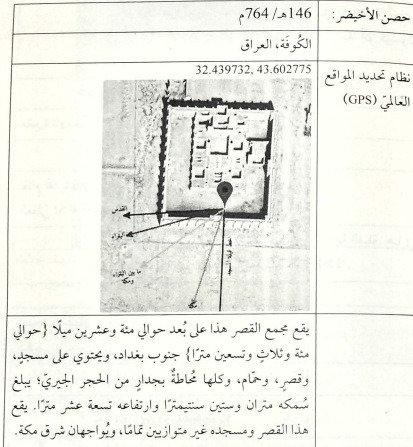 حصن الأخيضر: 146هـ/ 764م
الكُوفَة، العراق
نظام تحديد المواقع العالميّ (GPS)
32.439732, 43.602775
القدس
البتراء
ما بين البتراء ومكة
مكة
يقع مجمع القصر هذا على بُعد حوالي مئة وعشرين ميلًا {حوالي
مئة وثلاثٍ وتسعين مترًا} جنوب بغداد، ويحتوي على مسجدٍ،
وقصرٍ، وحمّام، وكلها مُحاطةٌ بجدارٍ من الحجر الجيريّ؛ يبلغ
سُمكه متران وستين سنتيمترًا وارتفاعه تسعة عشر مترًا. يقع
هذا القصر ومسجده غير متوازيين تمامًا، ويُواجهان شرق مكة.